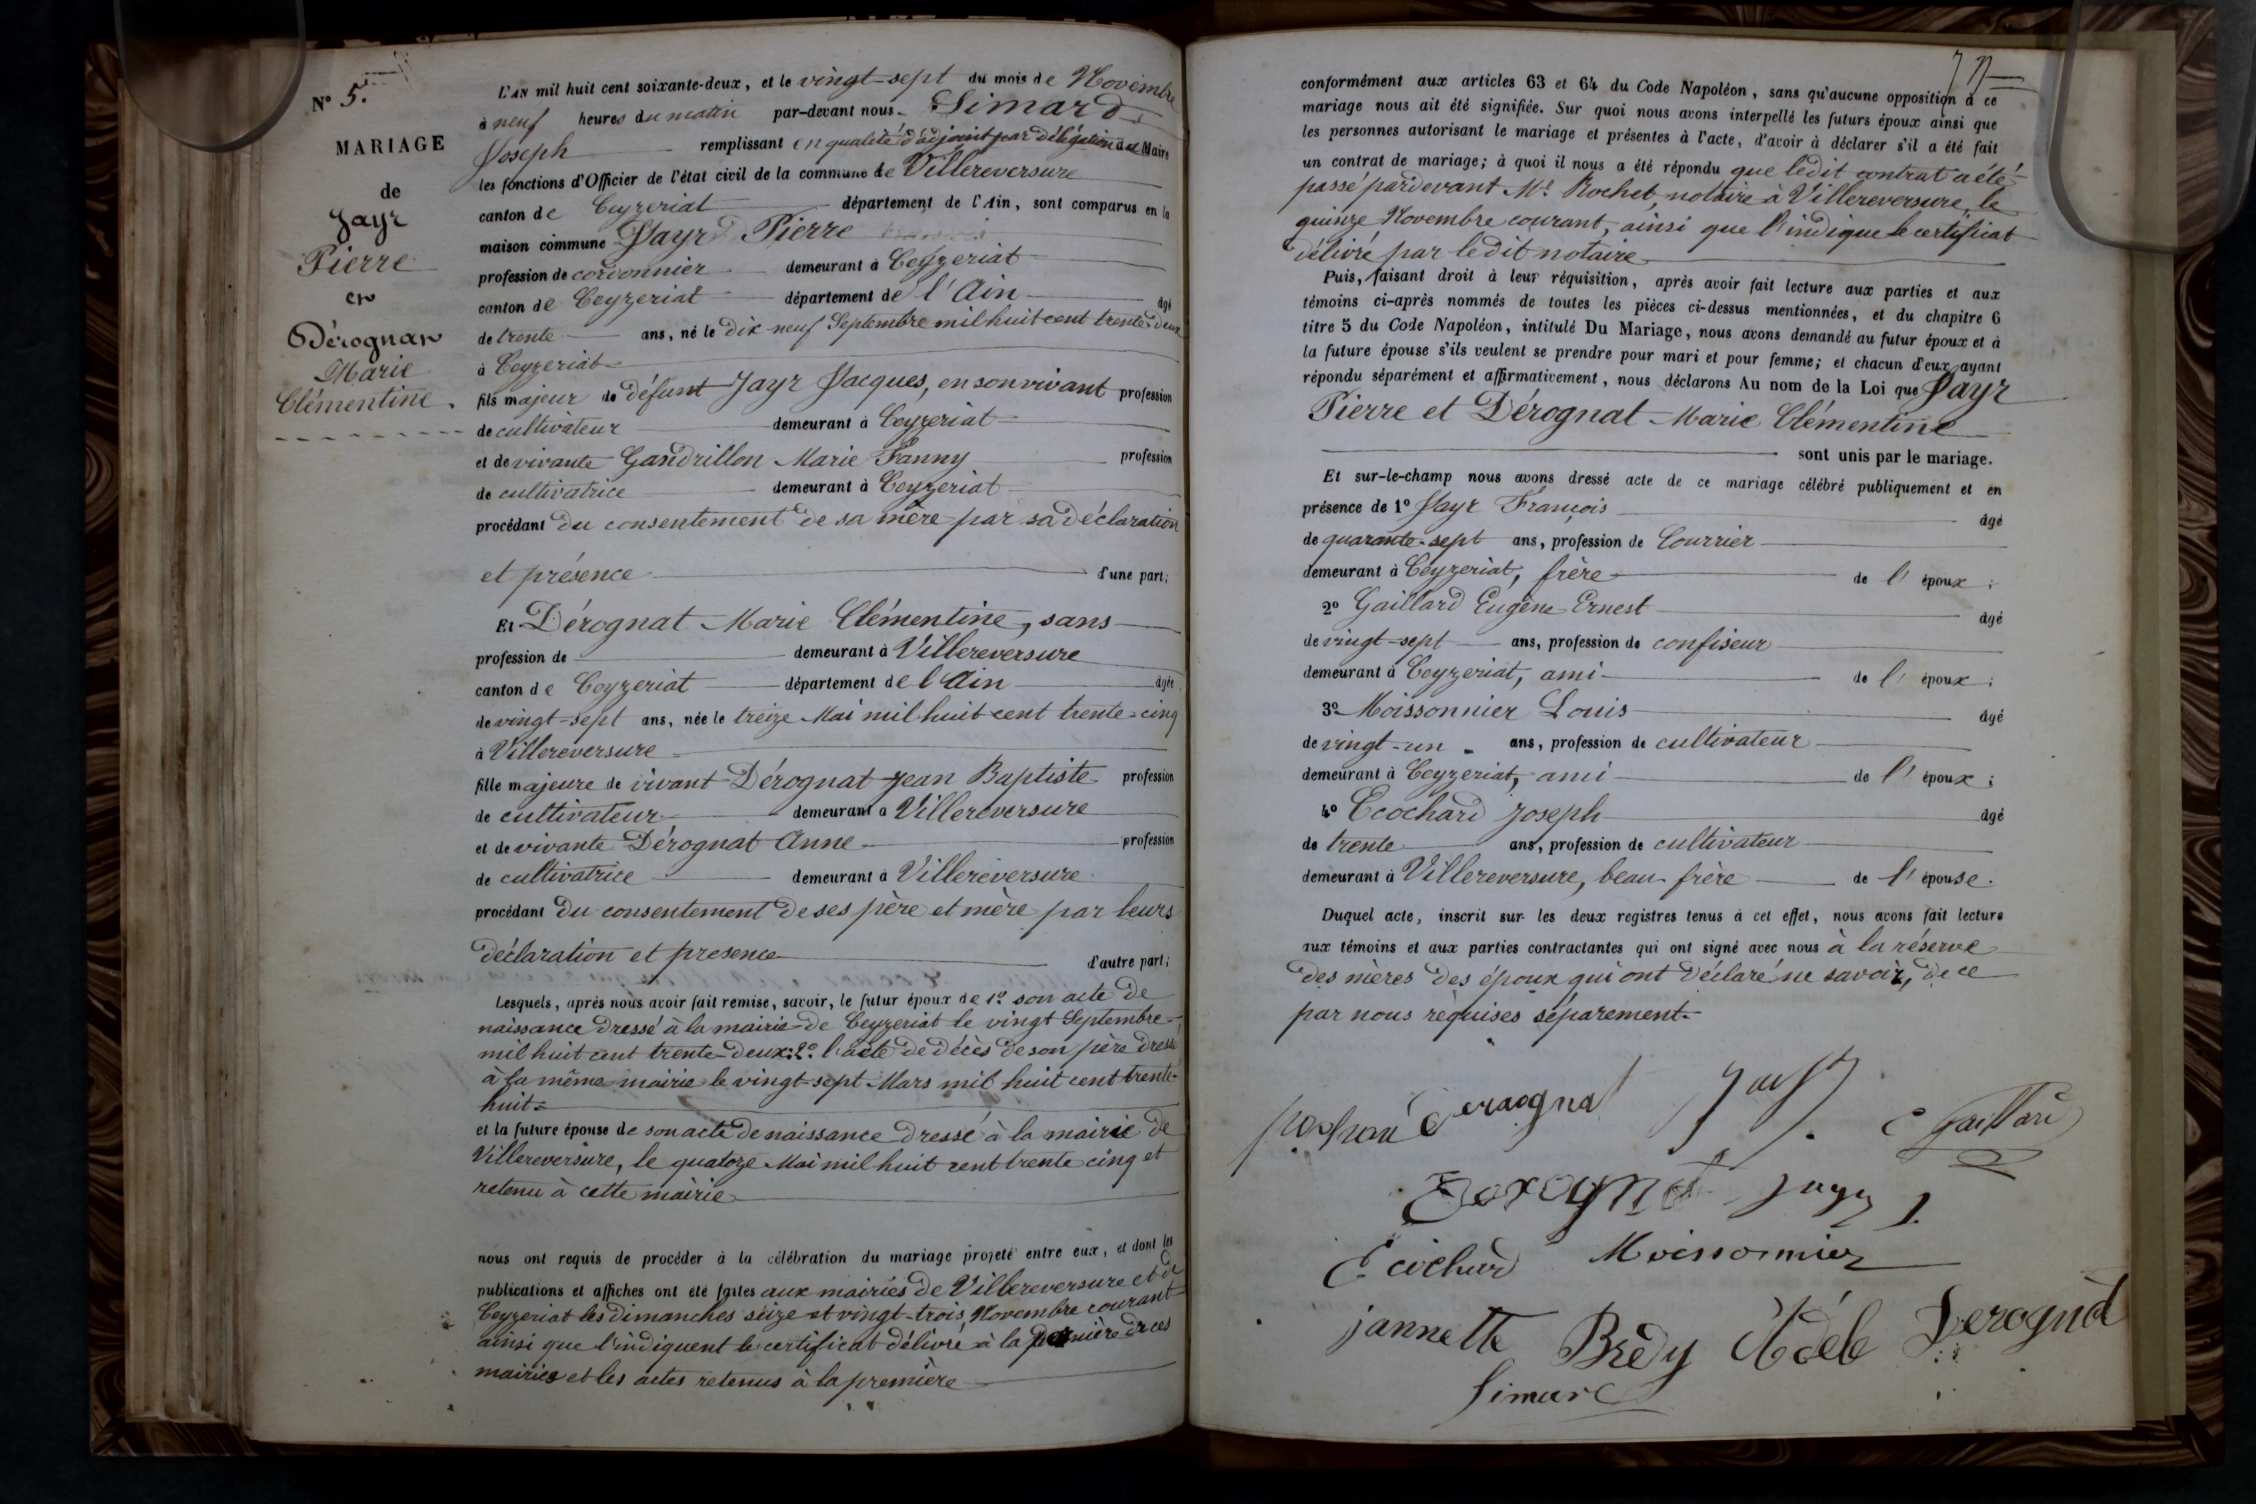 N° 5.
MARIAGE
de
Jayr
Pierre
et
Dérognat
Marie
Clémentine.
L'AN mil huit cent soixante-deux, et le vingt-sept du mois de Novembre
à neuf heures du matin par-devant nous Simard
Joseph remplissant en qualité d'adjoint par délégation du Maire
les fonctions d'Officier de l'état civil de la commune de Villereversure
canton de Ceyzeriat département de l'Ain, sont comparus en la
maison commune Jayr Pierre
profession de cordonnier demeurant à Ceyzeriat
canton de Ceyzeriat département de l'Ain âgé
de trente ans, né le dix-neuf Septembre mil huit cent trente-deux
à Ceyzeriat
fils majeur de défunt Jayr Jacques, en son vivant profession
de cultivateur demeurant à Ceyzeriat
et de vivante Gandrillon Marie Fanny profession
de cultivatrice demeurant à Ceyzeriat
procédant du consentement de sa mère par sa déclaration
et présence d'une part;
Et Dérognat Marie Clémentine, sans
profession de demeurant à Villereversure
canton de Ceyzeriat département de l'Ain âgée
de vingt-sept ans, née le treize Mai mil huit cent trente-cinq
à Villereversure
fille majeure de vivant Dérognat Jean Baptiste profession
de cultivateur demeurant à Villereversure
et de vivante Dérognat Anne profession
de cultivatrice demeurant à Villereversure
procédant du consentement de ses père et mère par leurs
déclaration et presence d'autre part;
Lesquels, après nous avoir fait remise, savoir, le futur époux de 1° son acte de
naissance dressé à la mairie de Ceyzeriat le vingt Septembre
mil huit cent trente-deux; 2° l'acte de décès de son père dressé
à la même mairie le vingt-sept Mars mil huit cent trente-
huit.
et la future épouse de son acte de naissance dressé à la mairie de
Villereversure, le quatorze Mai mil huit cent trente cinq et
retenu à cette mairie
nous ont requis de procéder à la célébration du mariage projeté entre eux, et dont les
publications et affiches ont été faites aux mairies de Villereversure et de
Ceyzeriat les dimanches seize et vingt-trois Novembre courant
ainsi que l'indiquent le certificat délivré à la dernière de ces
mairies et les actes retenus à la première
conformément aux articles 63 et 64 du Code Napoléon, sans qu'aucune opposition à ce
mariage nous ait été signifiée. Sur quoi nous avons interpellé les futurs époux ainsi que
les personnes autorisant le mariage et présentes à l'acte, d'avoir à déclarer s'il a été fait
un contrat de mariage; à quoi il nous a été répondu que ledit contrat a été
passé pardevant Me Rochet, notaire à Villereversure le
quinze Novembre courant, ainsi que l'indique le certificat
délivré par ledit notaire
Puis, faisant droit à leur réquisition, après avoir fait lecture aux parties et aux
témoins ci-après nommés de toutes les pièces ci-dessus mentionnées, et du chapitre 6
titre 5 du Code Napoléon, intitulé Du Mariage, nous avons demandé au futur époux et à
la future épouse s'ils veulent se prendre pour mari et pour femme; et chacun d'eux ayant
répondu séparément et affirmativement, nous déclarons Au nom de la Loi que Jayr
Pierre et Dérognat Marie Clémentine
sont unis par le mariage.
Et sur-le-champ nous avons dressé acte de ce mariage célébré publiquement et en
présence de 1° Jayr François âgé
de quarante-sept ans, profession de Courrier
demeurant à Ceyzeriat, frère de l'époux;
2° Gaillard Eugène Ernest âgé
de vingt-sept ans, profession de confiseur
demeurant à Ceyzeriat, ami de l'époux;
3° Moissonnier Louis âgé
de vingt-un ans, profession de cultivateur
demeurant à Ceyzeriat, ami de l'époux;
4° Ecochard Joseph âgé
de trente ans, profession de cultivateur
demeurant à Villereversure, beau-frère de l'épouse.
Duquel acte, inscrit sur les deux registres tenus à cet effet, nous avons fait lecture
aux témoins et aux parties contractantes qui ont signé avec nous à la réserve
des mères des époux qui ont déclaré ne savoir, de ce
par nous requises séparement.
E Gaillard
Ecochard Moissonnier
jannette Brédy Adèle Derognat
Simard